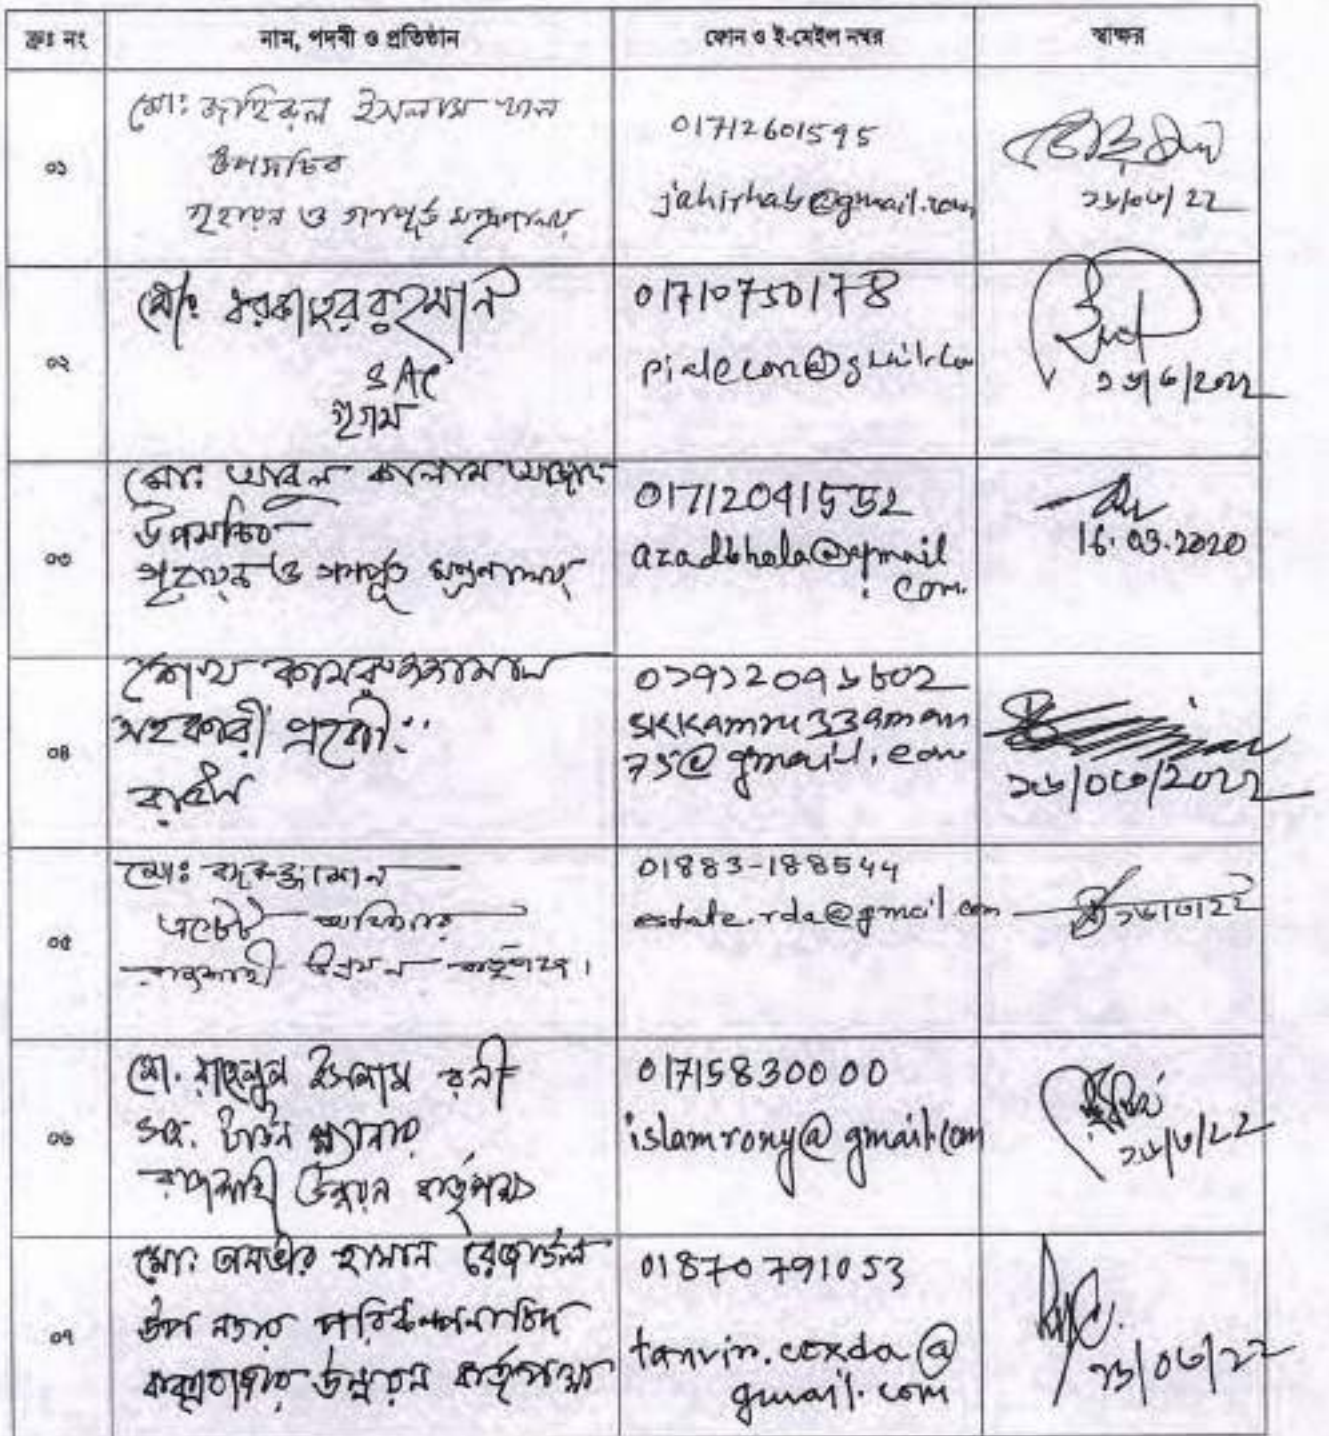 ক্রঃ নং নাম, পদবী ও প্রতিষ্ঠান ফোন ও ই-মেইল নম্বর স্বাক্ষর
০১
মো: জহিরুল ইসলাম খান
উপসচিব
গৃহায়ন ও গণপূর্ত মন্ত্রণালয়
01712601595
jahirhab@gmail.com
১৬/০৬/22
০২
মো: বরকাতুর রহমান
SAC
গৃগম
01710750178
১৬/৬/2022
০৩
মো: আবুল কালাম আজাদ
উপসচিব
গৃহায়ন ও গণপূর্ত মন্ত্রণালয়
01712091552
azadbhola@gmail
.com
16.03.2020
০৪
শেখ কামরুজ্জামান
সহকারী প্রকৌ:
75@gmail.com
১৬/০৬/2022
০৫
মো: বদরুজ্জামান
এস্টেট অফিসার
রাজশাহী উন্নয়ন কর্তৃপক্ষ।
01883-188544
estate.rda@gmail.com
১৬/৬/22
০৬
মো. রাহেনুল ইসলাম রনী
সহ. টাউন প্ল্যানার
রাজশাহী উন্নয়ন কর্তৃপক্ষ
01715830000
islamrony@gmail.com
১৬/৬/22
০৭
মো: তানভীর হাসান রেজাউল
উপ নগর পরিকল্পনাবিদ
কক্সবাজার উন্নয়ন কর্তৃপক্ষ
01870791053
tanvir.coxda@
gmail.com
১৬/০৬/২২